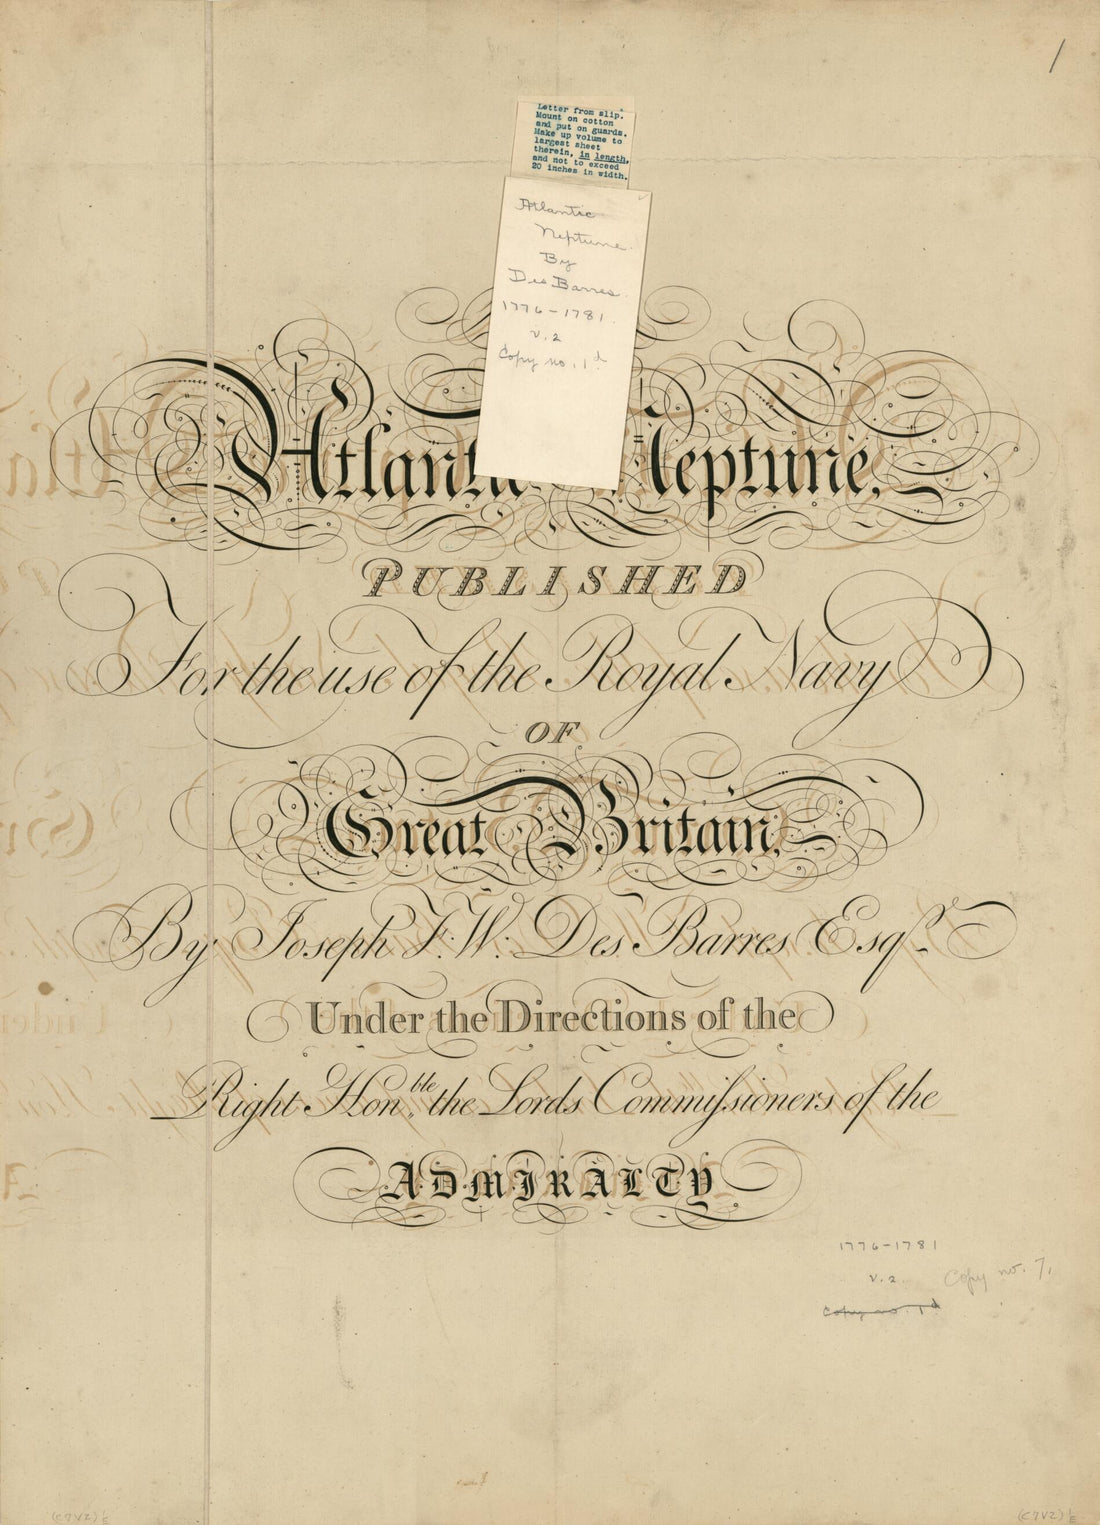 1
Letter from slip.
Mount on cotton
and put on guards.
Make up volume to
largest sheet
therein, in length,
and not to exceed
20 inches in width.
Atlantic
Neptune.
By
Des Barres.
1776-1781.
v. 2
Copy no. 1d
Atlantic Neptune,
PUBLISHED
For the use of the Royal Navy
OF
Great Britain,
By Joseph F. W. Des Barres Esqr.
Under the Directions of the
Right Honble. the Lords Commiſsioners of the
ADMIRALTY
1776-1781
v. 2.
Copy no. 7.
Copy no. 1d